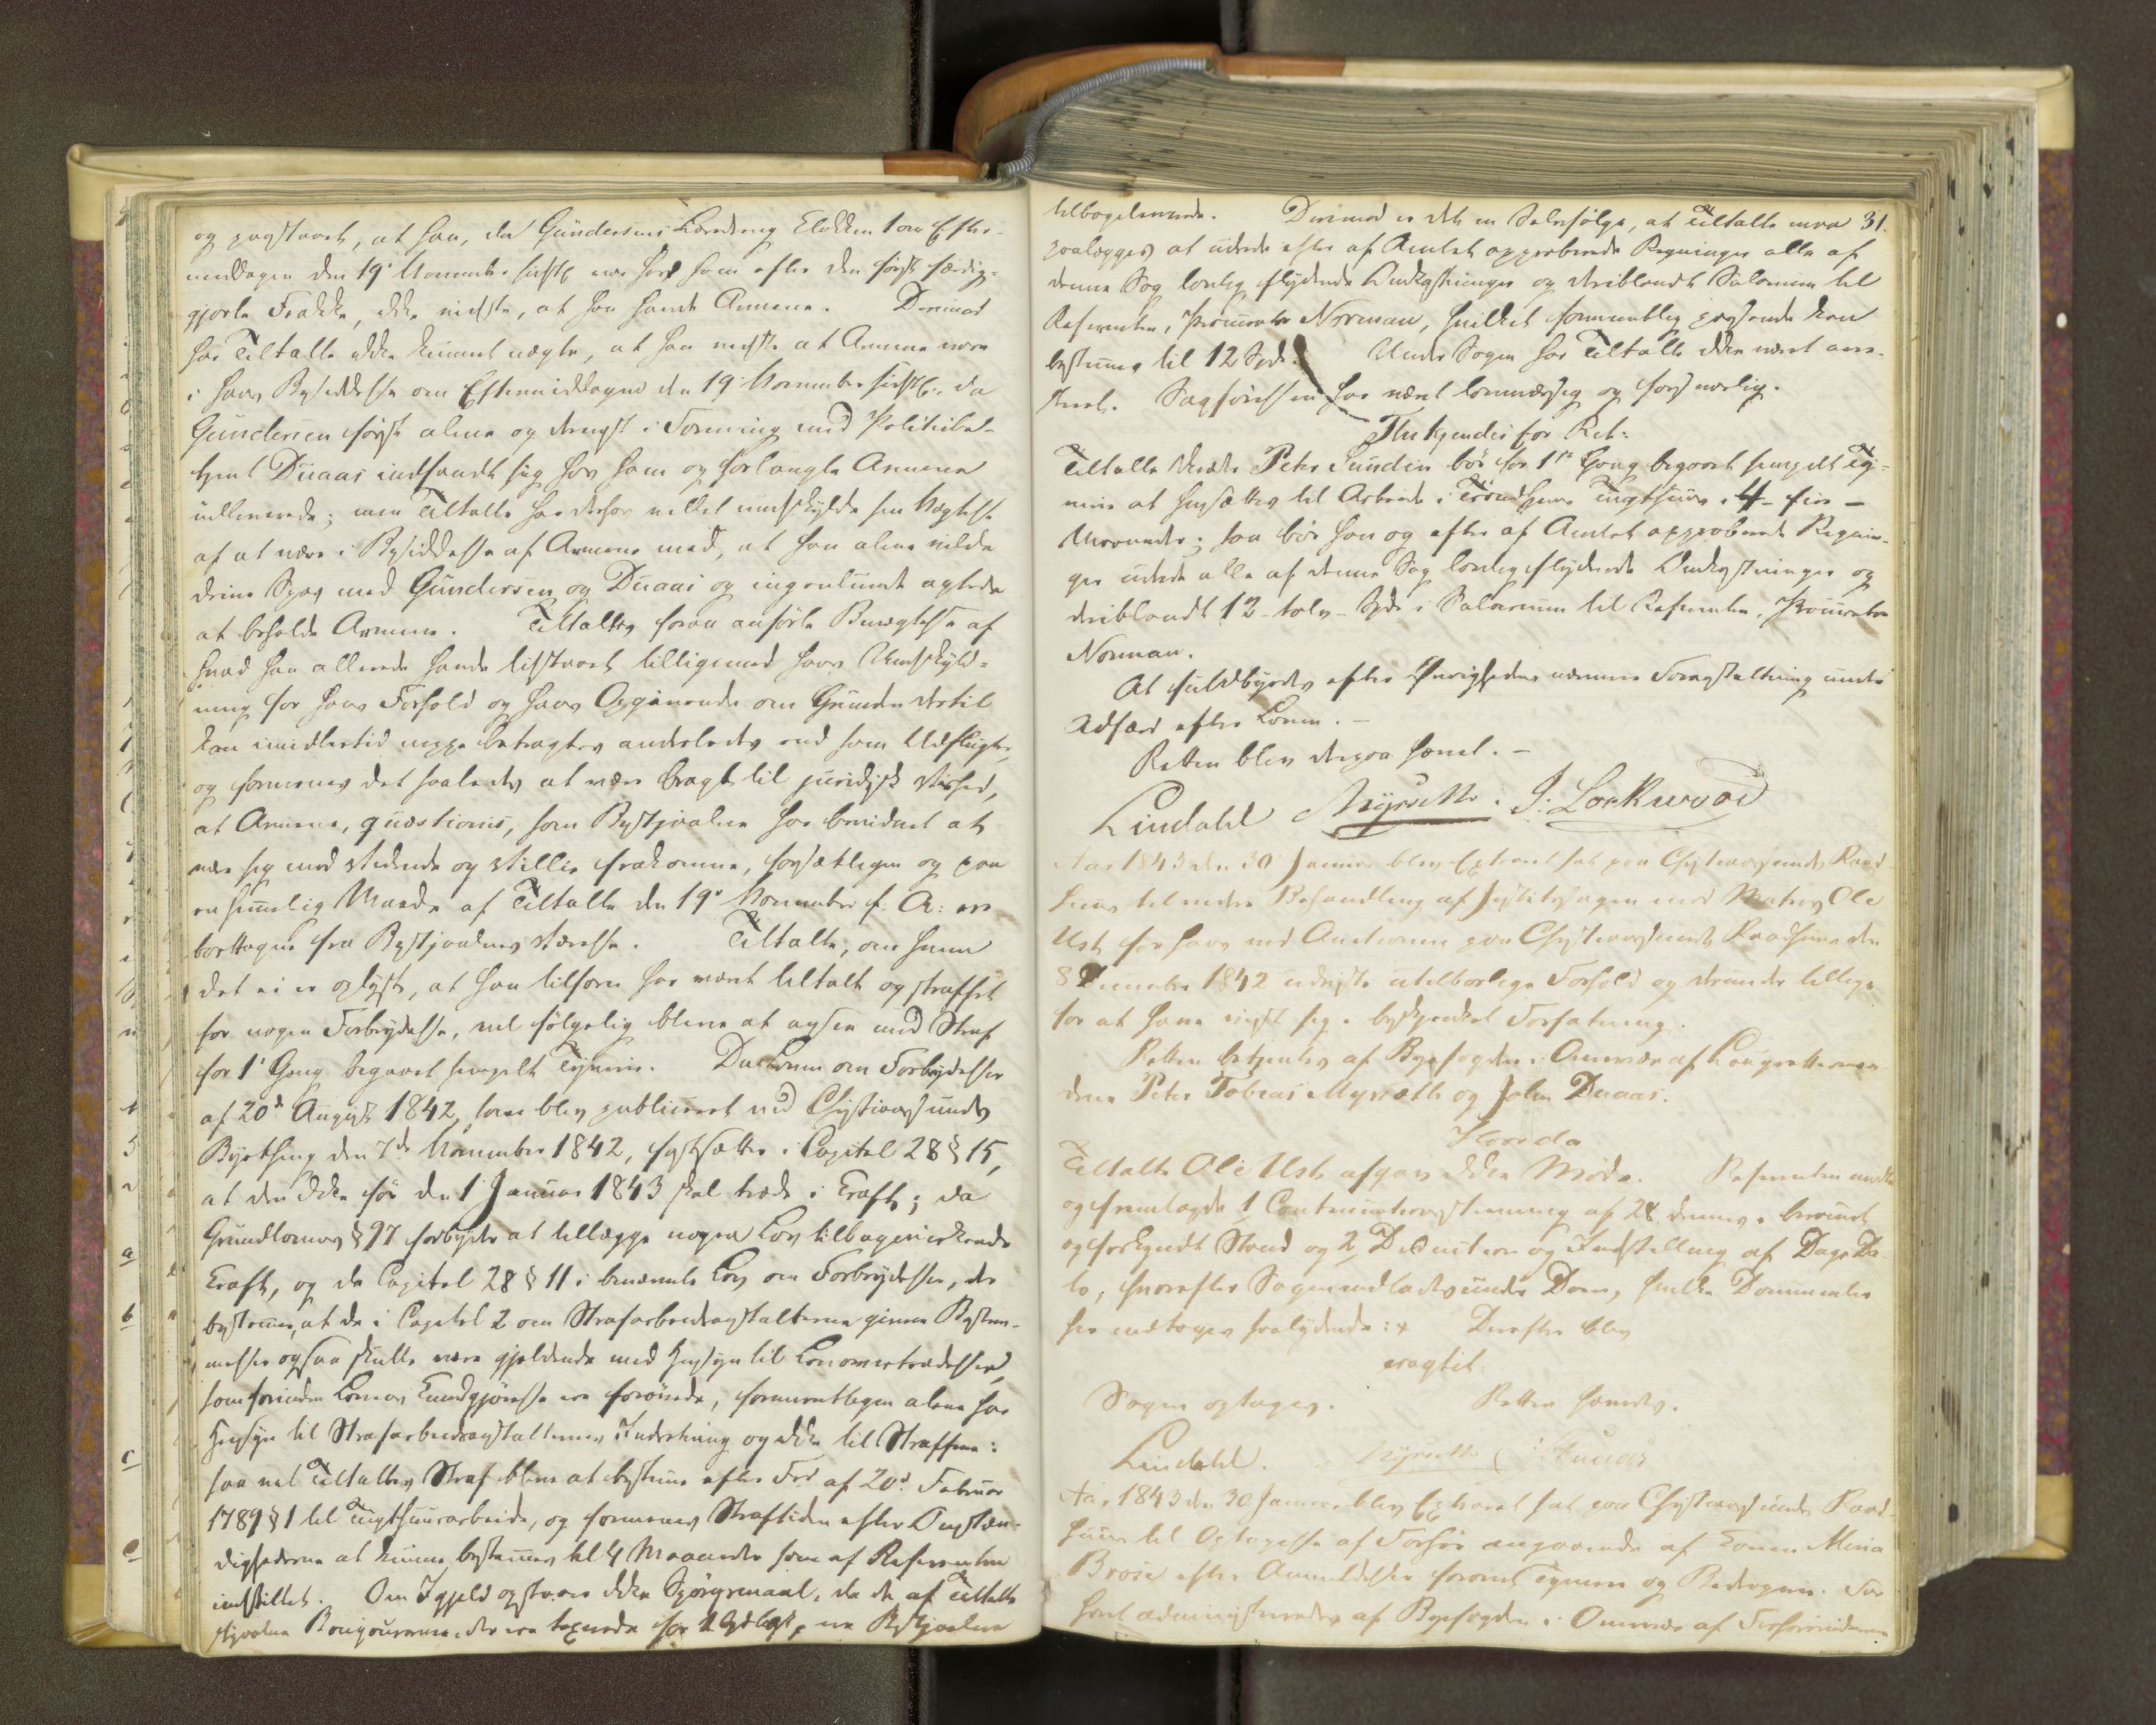 og paastaaet, at han, da Gundersens Læredreng Klokken 1 om Efter-
middagen den 19de November sidstl. var hos ham efter den først færdig-
gjorte Frakke, ikke vidste, at han havde Ærmene. Derimod
har Tiltalte ikke kunnet nægte, at han vidste at Ærmene vare
i hans Besiddelse om Eftermiddagen den 19de November sidstl., da
Gundersen først alene og dernæst i Forening med Politibe-
tjent Duaas indfandt sig hos ham og forlangte Ærmene
udleverede; men Tiltalte har derhos villet undskylde sin Nægtelse
af at være i Besiddelse af Ærmene med, at han alene vilde
drive Spas med Gundersen og Duaas og ingenlunde agtede
at beholde Ærmene. Tiltaltes foran anførte Benægtelse af
hvad han allerede havde tilstaaet tilligemed hans Undskyld-
ning for hans Forhold og hans Opgivende om Grunden dertil
kan imidlertid neppe betragtes anderledes end som Udflugter,
og formenes det saaledes at være bragt til juridisk Vished,
at Ærmene, quæstionis, som Bestjaalne har beediget at
være sig mod Vidende og Villie frakomne, forsætligen og paa
en hemmelig Maade af Tiltalte den 19de November f. A. ere
borttagne fra Bestjaalnes Værelse. Tiltalte, om hvem
det ei er oplyst, at han tilforn har været tiltalt og straffet
for nogen Forbrydelse, vil følgelig blive at ansee med Straf
for 1ste Gang begaaet simpelt Tyverie. Da Loven om Forbrydelser
af 20de August 1842, som blev publiceret ved Christiansunds
Byething den 7de November 1842, fastsætter i Capitel 28 § 15,
at den ikke før den 1 Januar 1843 skal træde i Kraft; da
Grundlovens § 97 forbyder at tillægge nogen Lov tilbagevirkende
Kraft, og da Capitel 28 § 11 i benævnte Lov om Forbrydelser, der
bestemmer, at de i Capitel 2 om Strafarbeidsanstalterne givne Bestem-
melser ogsaa skulle være gjeldende med Hensyn til Lovovertrædelser,
som forinden Lovens Kundgjørelse ere forøvede, formeentligen alene har
Hensyn til Strafarbeidsanstalternes Indretning og ikke til Straffene:
saa vil Tiltaltes Straf blive at bestemme efter Frd. af 20de Februar
1789 § 1 til Tugthuusarbeide, og formenes Straftiden efter Omstæn-
dighederne at kunne bestemmes til 4 Maaneder som af Referenten
indstillet. Om Igjeld opstaaer ikke Spørgsmaal, da de af Tiltalte
stjaalne
tilbageleverede. Derimod er det en Selvfølge, at Tiltalte maa 31.
paalægges at udrede efter af Amtet approberede Regninger alle af
denne Sag lovlig flydende Omkostninger og deriblandt Salarium til
Referenten, Procurator Norman, hvilket formeentlig passende kan
bestemmes til 12 Spd. Under Sagen har Tiltalte ikke været arre-
steret. Sagførelsen har været lovmæssig og forsvarlig.
Thi kjendes for Ret:
Tiltalte Peter Lundin bør for 1ste Gang begaaet simpelt Ty-
verie at hensættes til Arbeide i Trondhjems Tugthuus i 4 – fire –
Maaneder; saa bør han og efter af Amtet approberede Regnin-
ger udrede alle af denne Sag lovlig flydende Omkostninger og
deriblandt 12 – tolv – Spd. i Salarium til Referenten, Procurator
Norman.
At fuldbyrdes efter Øvrighedens nærmere Foranstaltning under
Adfærd efter Loven. –
Retten blev derpaa hævet. –
Lindahl Myrseth. J: Lockwood
Aar 1843 den 30 Januar blev Extraret sat paa Christiansunds Raad-
huus til videre Behandling af Justitssagen mod Matros Ole
Ust for hans ved Auctionen paa Christiansunds Raadhuus den
8 December 1842 udviste utilbørlige Forhold og derunder tillige
for at have viist sig i beskjenket Forfatning.
Retten betjentes af Byefogden i Overvær af Laugrettemæn-
dene Peter Tobias Myrseth og John Duaas.
Hvorda
Tiltalte Ole Ust afgav ikke Møde. Referenten mødte
og fremlagde 1, Continuationsstevning af 28 dennes i beroende
og forkyndt Stand og 2, Deduction og Indstilling af Dags Da-
to, hvorefter Sagen indlodes under Dom, hvilke Documenter
her indtages saalydende: + Derefter blev
eragtet:
Sagen optages. Retten hævedes.
Lindahl. Myrseth Duaas
Aar 1843 den 30 Januar blev Extraret sat paa Christiansunds Raad-
huus til Optagelse af Forhør angaaende af Konen
efter Anmeldelse forøvet Tyverie og Bedragerie. For-
høret administreredes af Byefogden i Overvær af Forhørsvidnerne